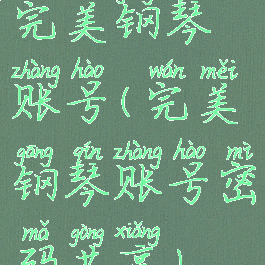 完美钢琴
zhàng hào wán měi
账号(完美
gāng qín zhàng hào mì
钢琴账号密
mǎ gòng xiǎng
码共享)